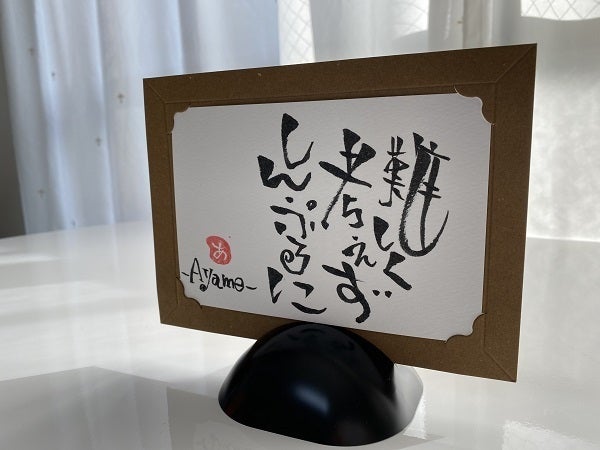 難しく
考えず
しんぷるに
あ
-Ayame-